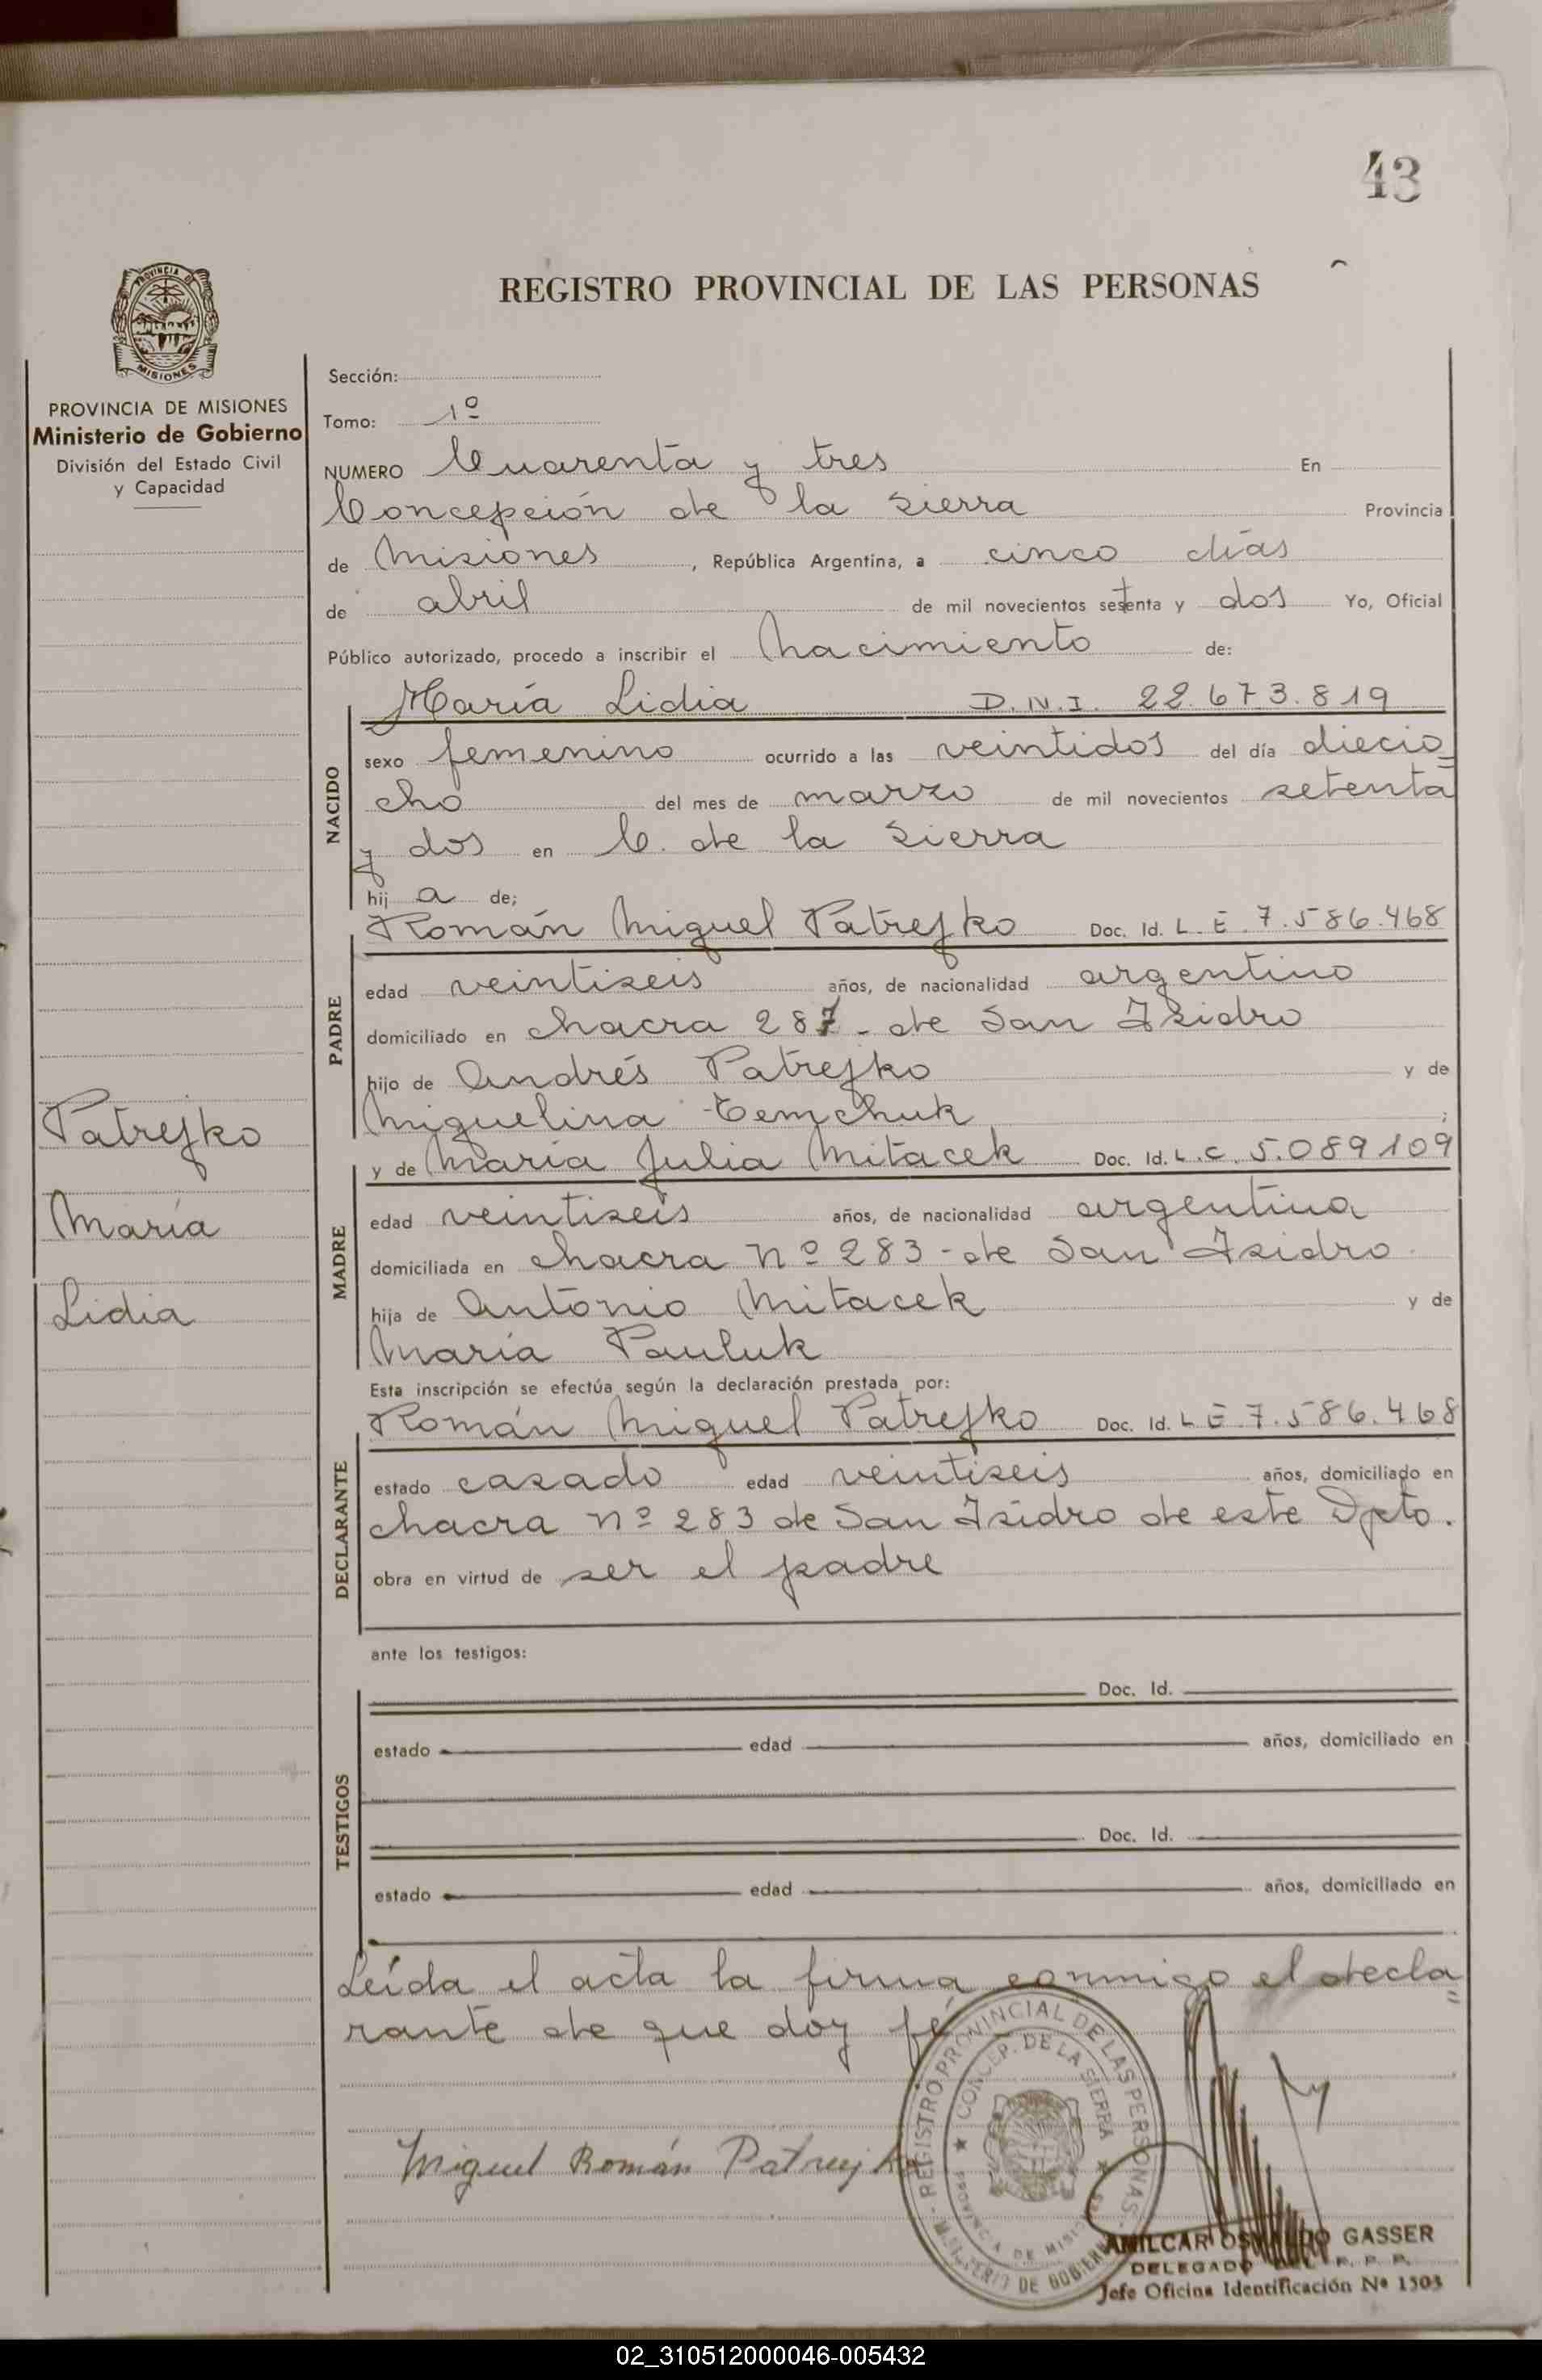 43
REGISTRO PROVINCIAL DE LAS PERSONAS
PROVINCIA DE
MISIONES
PROVINCIA DE MISIONES
Ministerio de Gobierno
División del Estado Civil
y Capacidad
Patrejko
María
Lidia
Sección:
Tomo: 1º
NUMERO Cuarenta y tres En
Concepción de la Sierra Provincia
de Misiones, República Argentina, a cinco días
de abril de mil novecientos setenta y dos Yo, Oficial
Público autorizado, procedo a inscribir el Nacimiento de:
NACIDO
María Lidia D.N.I. 22.673.819
sexo femenino ocurrido a las veintidos del día diecio=
cho del mes de marzo de mil novecientos setenta
y dos en C. de la Sierra
hij a de;
PADRE
Román Miguel Patrejko Doc. Id. L.E. 7.586.468
edad veintiseis años, de nacionalidad argentino
domiciliado en chacra 287 - de San Isidro
hijo de Andrés Patrejko y de
Miguelina Temchuk ;
MADRE
y de María Julia Mitacek Doc. Id. L.C. 5.089109
edad veintiseis años, de nacionalidad argentina
domiciliada en chacra nº 283 - de San Isidro
hija de Antonio Mitacek y de
María Pauluk
Esta inscripción se efectúa según la declaración prestada por:
DECLARANTE
Román Miguel Patrejko Doc. Id. L E. 7.586.468
estado casado edad veintiseis años, domiciliado en
chacra nº 283 de San Isidro de este Dpto.
obra en virtud de ser el padre
ante los testigos:
TESTIGOS
Doc. Id.
estado edad años, domiciliado en
Doc. Id.
estado edad años, domiciliado en
Leída el acta la firma conmigo el decla=
rante de que doy fé
Miguel Román Patrejko
REGISTRO PROVINCIAL DE LAS PERSONAS
MINISTERIO DE GOBIERNO
CONCEP. DE LA SIERRA
PROVINCIA DE MISIONES
AMILCAR OSVALDO GASSER
DELEGADO DEL R. P. P.
Jefe Oficina Identificación Nº 1503
02_310512000046-005432